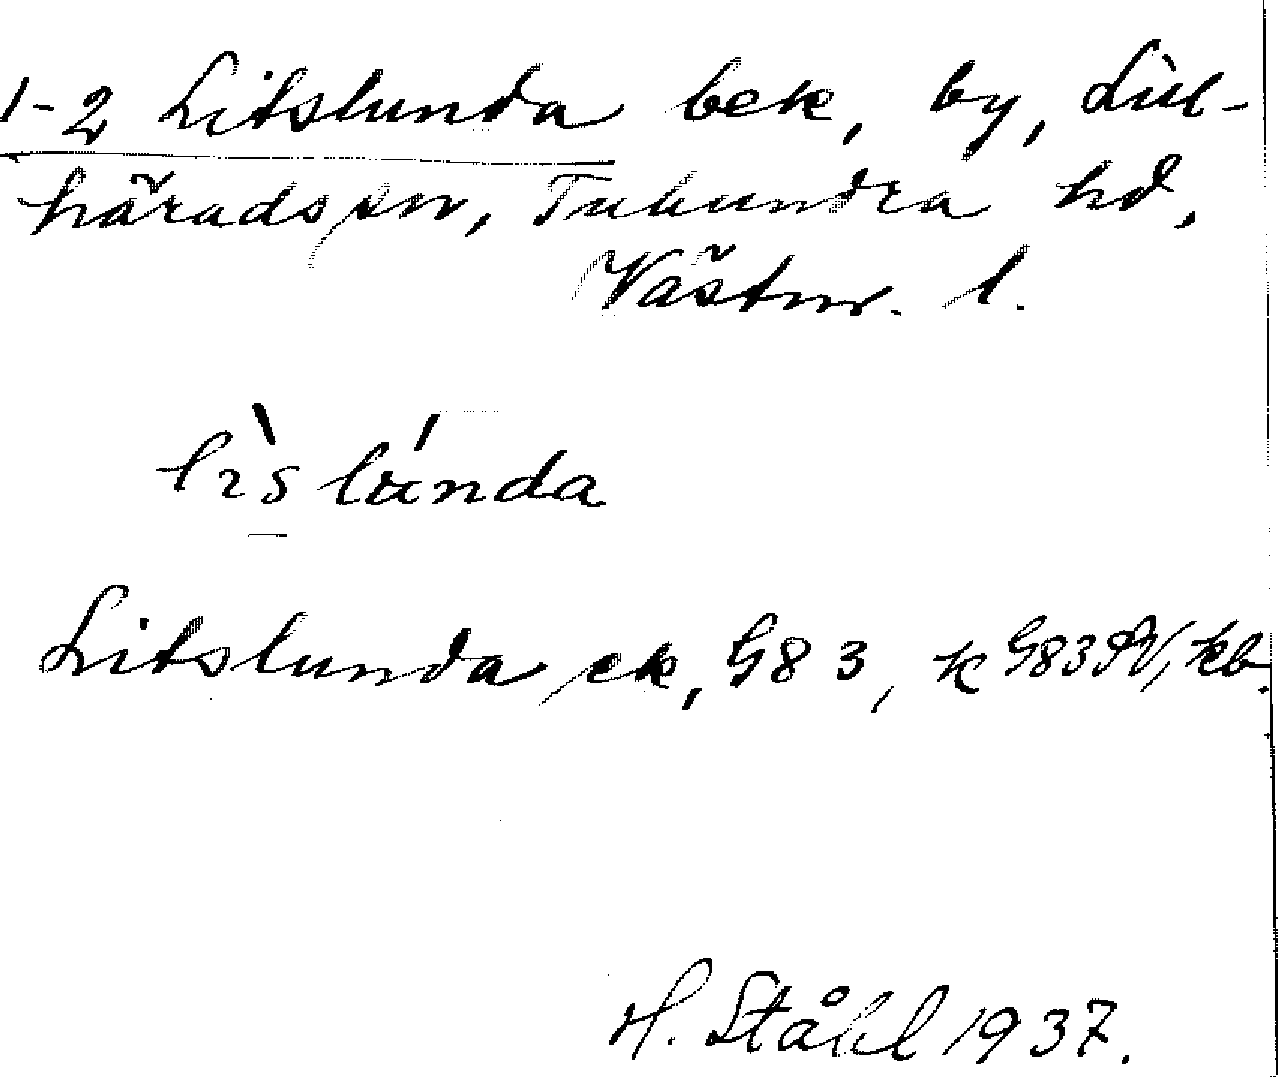 1-2 Litslunda bek, by, Lill-
härads sn, Tuhundra hd,
Västm. l.
lìslúnda
Litslunda ek, G83, k G83 AV, kb.
H. Ståhl 1937.